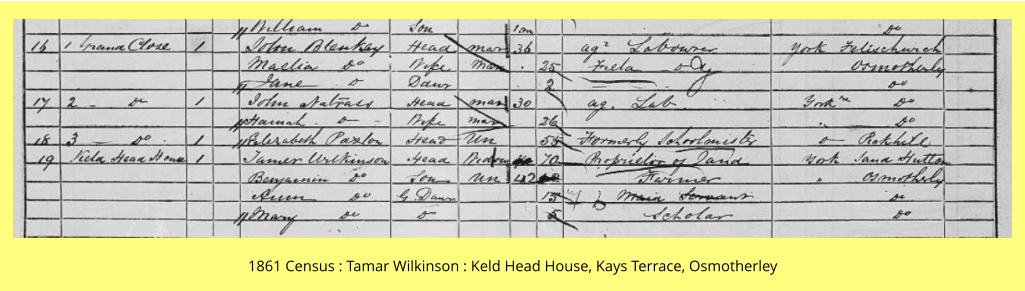 " William Do Son 1m Do
16 1 Grand Close 1 John Blenkey Head mar 36 ag. Labourer York Felischurch
Maelia Do Wife Mar 25 Field Do Osmotherly
" Jane Do Daur 2 Do
17 2 - Do 1 John Natrass Head mar 30 ag. Lab York Do
" Hannah Do Wife mar 26 " Do
18 3 - Do 1 " Elizabeth Paxton Head Un 55 Formerly Schoolmistress Do Pickhill
19 Keld Head House 1 Tamer Wilkinson Head Widow 70 Proprietor of Land York Sand Hutton
Benjamin Do Son Un 42 Farmer " Osmotherly
Ann Do G Daur 15 Servant Do
" Mary Do Do 5 Scholar Do
1861 Census : Tamar Wilkinson : Keld Head House, Kays Terrace, Osmotherley